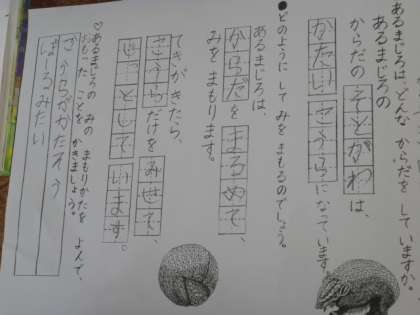 あるまじろは、どんな からだを していますか。
あるまじろの
からだの そとがわ は、
かたい こうら になっています。
●どのように して みを まもるのでしょう。
あるまじろは、
からだを まるめて、
みを まもります。
てきがきたら、
こうらだけを みせて、
じっとして います。
♡あるまじろの みの まもりかたを よんで、
おもった ことを かきましょう。
こうらがかたそう
ぼるみたい